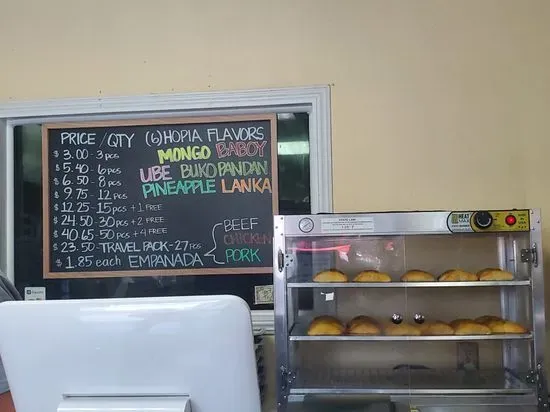 PRICE/QTY (6) HOPIA FLAVORS
$ 3.00 - 3 pcs MONGO BABOY
$ 5.40 - 6 pcs UBE BUKO PANDAN
$ 6.50 - 8 pcs PINEAPPLE LANKA
$ 9.75 - 12 pcs
$ 12.25 - 15 pcs + 1 FREE
$ 24.50 - 30 pcs + 2 FREE
$ 40.65 - 50 pcs + 4 FREE
$ 23.50 - TRAVEL PACK - 27 pcs
$ 1.85 each EMPANADA { BEEF
CHICKEN
PORK
HEAT
MAX